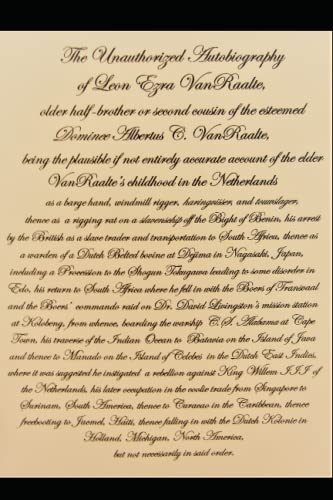 The Unauthorized Autobiography
of Leon Ezra VanRaalte,
older half-brother or second cousin of the esteemed
Dominee Albertus C. VanRaalte,
being the plausible if not entirely accurate account of the elder
VanRaalte's childhood in the Netherlands
as a barge hand, windmill rigger, haringvisser, and townslager,
thence as a rigging rat on a slavenschip off the Bight of Benin, his arrest
by the British as a slave trader and transportation to South Africa, thence as
a warden of a Dutch Belted bovine at Dejima in Nagasaki, Japan,
including a Procession to the Shogun Tokugawa leading to some disorder in
Edo, his return to South Africa where he fell in with the Boers of Transvaal
and the Boers' commando raid on Dr. David Livingston's mission station
at Kolobeng, from whence, boarding the warship C.S. Alabama at Cape
Town, his traverse of the Indian Ocean to Batavia on the Island of Java
and thence to Manado on the Island of Celebes in the Dutch East Indies,
where it was suggested he instigated a rebellion against King Willem III of
the Netherlands, his later occupation in the coolie trade from Singapore to
Surinam, South America, thence to Curacao in the Caribbean, thence
freebooting to Jacmel, Haiti, thence falling in with the Dutch Kolonie in
Holland, Michigan, North America,
but not necessarily in said order.